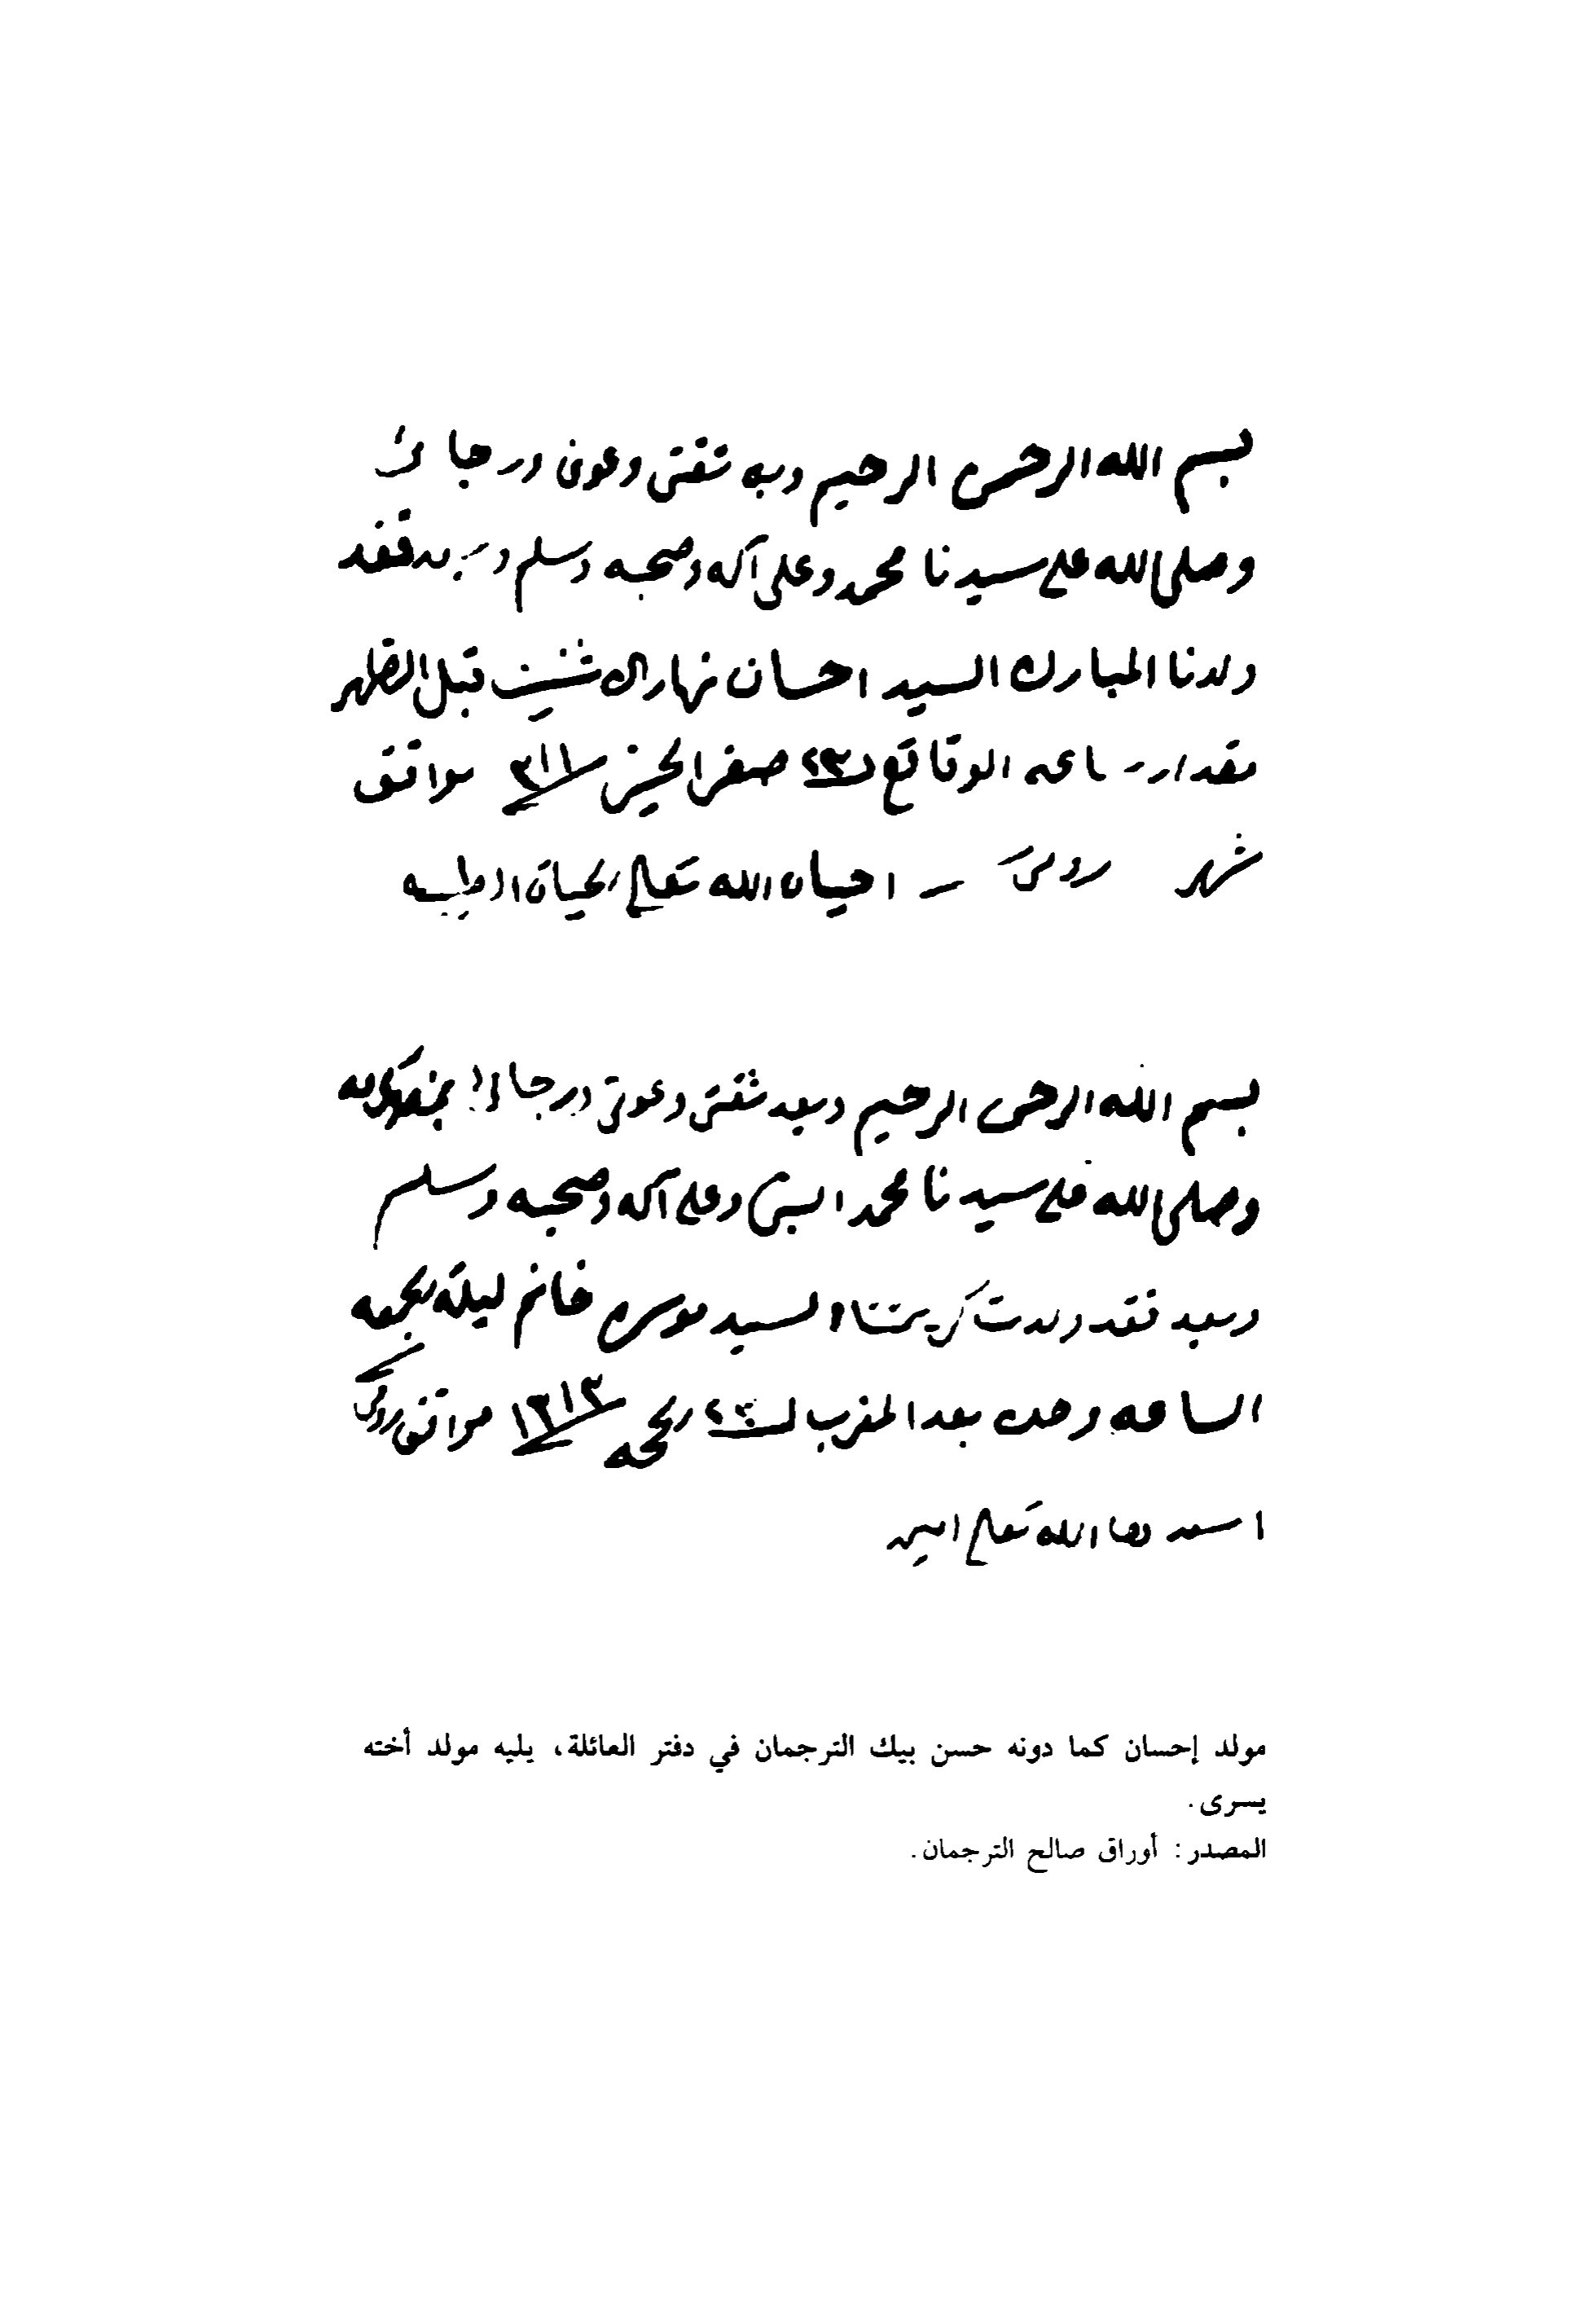 بسم الله الرحمن الرحيم وبه ثقتي وعوني ورجائي
وصلى الله على سيدنا محمد وعلى آله وصحبه وسلم وبعد فقد
ولدنا المبارك السيد احسان نهار الاثنين قبل الظهر
مقدار ساعه الوقاقع ٢٣ صفر الخير ٣١١ موافق
شهر احياه الله تعالى الحياة الطيبه
بسم الله الرحمن الرحيم وبه ثقتي وعوني ورجائي
وصلى الله على سيدنا محمد النبي وعلى آله وصحبه وسلم
وبعد فقد ولدت كريمتنا السيد خانم ليلة الجمعه
الساعه وحده بعد المغرب الحجه ١٣١٣ موافق
اسعدها الله تعالى امين
مولد إحسان كما دونه حسن بيك الترجمان في دفتر العائلة، يليه مولد أخته
يسرى.
المصدر: أوراق صالح الترجمان.